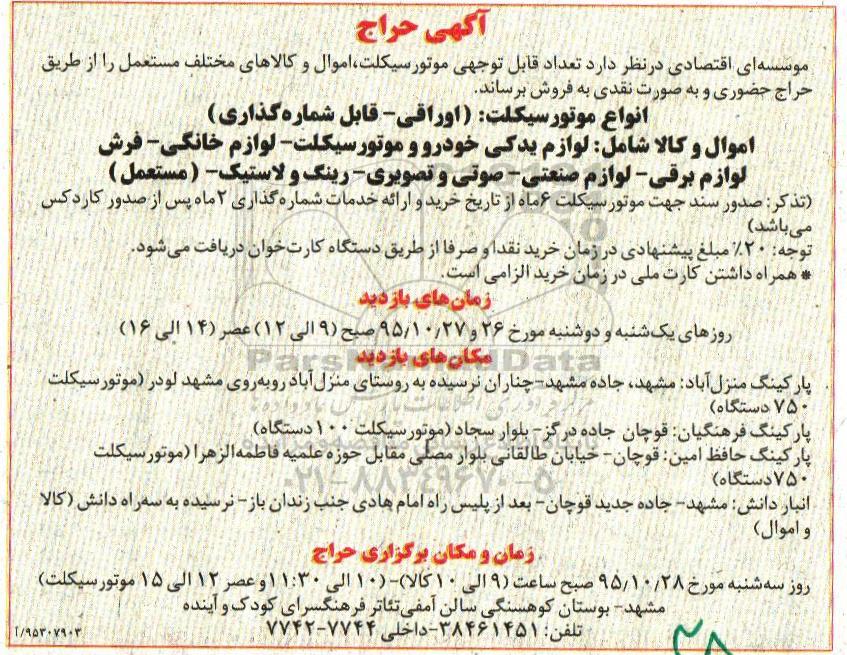 آگهی حراج
موسسه‌ای اقتصادی درنظر دارد تعداد قابل توجهی موتورسیکلت،اموال و کالاهای مختلف مستعمل را از طریق
حراج حضوری و به صورت نقدی به فروش برساند.
انواع موتورسیکلت: (اوراقی- قابل شماره‌گذاری)
اموال و کالا شامل: لوازم یدکی خودرو و موتورسیکلت- لوازم خانگی- فرش
لوازم برقی- لوازم صنعتی- صوتی و تصویری- رینگ و لاستیک- (مستعمل)
(تذکر: صدور سند جهت موتورسیکلت ۶ماه از تاریخ خرید و ارائه خدمات شماره‌گذاری ۲ماه پس از صدور کاردکس
می‌باشد)
توجه: ۲۰٪ مبلغ پیشنهادی در زمان خرید نقدا و صرفا از طریق دستگاه کارت‌خوان دریافت می‌شود.
* همراه داشتن کارت ملی در زمان خرید الزامی است.
زمان‌های بازدید
روزهای یک‌شنبه و دوشنبه مورخ ۲۶ و ۹۵٫۱۰٫۲۷ صبح (۹ الی ۱۲) عصر (۱۴ الی ۱۶)
مکان‌های بازدید
ParsNamadData
پارکینگ منزل‌آباد: مشهد، جاده مشهد-چناران نرسیده به روستای منزل‌آباد روبه‌روی مشهد لودر (موتورسیکلت
۷۵۰ دستگاه)
پارکینگ فرهنگیان: قوچان جاده درگز- بلوار سجاد (موتورسیکلت ۱۰۰ دستگاه)
پارکینگ حافظ امین: قوچان- خیابان طالقانی بلوار مصلی مقابل حوزه علمیه فاطمه‌الزهرا (موتورسیکلت
۷۵۰دستگاه)
۰۲۱-۸۸۳۴۹۶۷۰-۵
انبار دانش: مشهد- جاده جدید قوچان- بعد از پلیس راه امام هادی جنب زندان باز- نرسیده به سه‌راه دانش (کالا
و اموال)
زمان و مکان برگزاری حراج
روز سه‌شنبه مورخ ۹۵٫۱۰٫۲۸ صبح ساعت (۹ الی ۱۰ کالا)- (۱۰ الی ۱۱:۳۰ و عصر ۱۲ الی ۱۵ موتورسیکلت)
مشهد- بوستان کوهسنگی سالن آمفی‌تئاتر فرهنگسرای کودک و آینده
تلفن: ۳۸۴۶۱۴۵۱-داخلی ۷۷۴۴-۷۷۴۲
۹۵۳۰۷۹۰۳/آ
۲۸